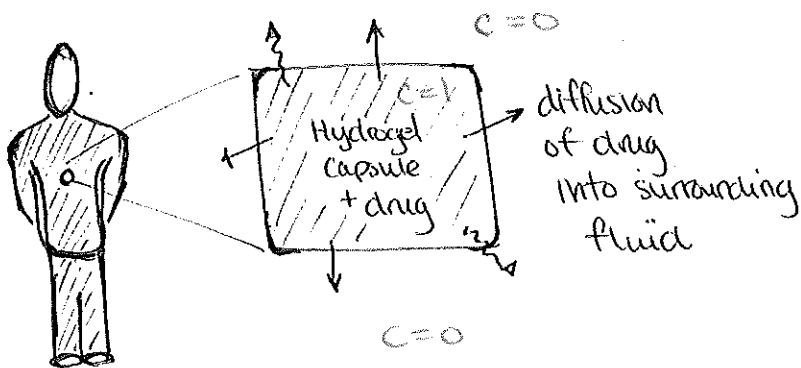 C=0
C=1
Hydrogel
Capsule
+ drug
diffusion
of drug
into surrounding
fluid
C=0